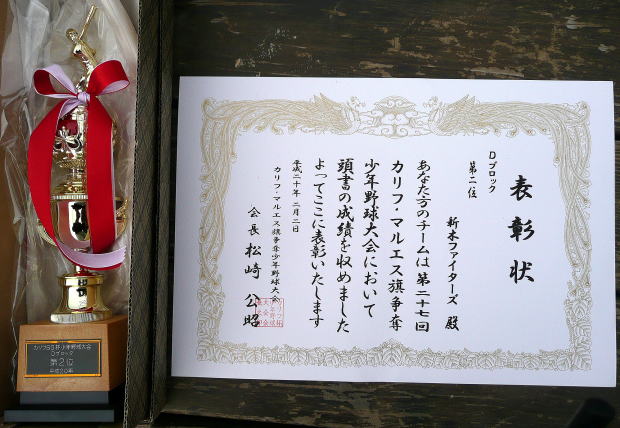 表彰状
Dブロック
第二位
新木ファイターズ 殿
あなた方のチームは第二十七回
カリフ・マルエス旗争奪
少年野球大会において
頭書の成績を収めました
よってここに表彰いたします
平成二十年 二月二日
カリフ・マルエス旗争奪少年野球大会
会長 松崎 公昭
Dブロック
第2位
平成20年